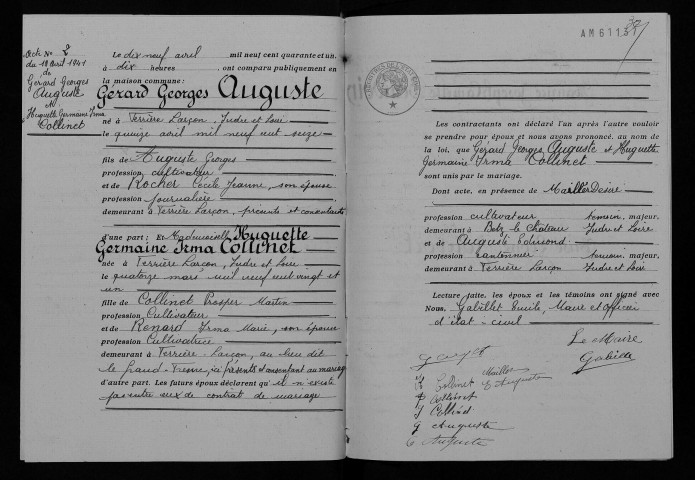 Acte No 2
du 19 avril 1941
de
Gerard Georges
Auguste
et
Huguette Germaine Irma
Collinet
Le dix neuf avril mil neuf cent quarante et un,
à dix heures, ont comparu publiquement en
la maison commune:
Gerard Georges Auguste
né à Ferrière Larçon, Indre et Loire
le quinze avril mil neuf cent seize
fils de Auguste Georges
profession cultivateur
et de Rocher Cécile Jeanne, son épouse
profession journalière
demeurant à Ferrière Larçon, présents et consentants
d'une part: Et Mademoiselle Huguette
Germaine Irma Collinet
née à Ferrière Larçon, Indre et Loire
le quatorze mars mil neuf cent vingt et
un
fille de Collinet Prosper Martin
profession Cultivateur
et de Renard Irma Marie, son épouse
profession Cultivatrice
demeurant à Ferrière-Larçon, au lieu dit
le présents et consentant au mariage
d'autre part. Les futurs époux déclarent qu'il n'existe
pas entre eux de contrat de mariage
AM61131
39
Les contractants ont déclaré l'un après l'autre vouloir
se prendre pour époux et nous avons prononcé, au nom de
la loi, que Gérard Georges Auguste et Huguette
Germaine Irma Collinet
sont unis par le mariage.
Dont acte, en présence de Maillet Désiré
profession cultivateur témoin, majeur,
demeurant à Betz le Château Indre et Loire
et de Auguste Edmond
profession cantonnier témoin, majeur,
demeurant à Ferrière Larçon Indre et Loire
Lecture faite, les époux et les témoins ont signé avec
Nous, Gabillet Emile, Maire et Officier
d'état-civil
Le Maire
Gabillet
Maillet
Collinet E Auguste
Collinet
G Auguste
C Auguste